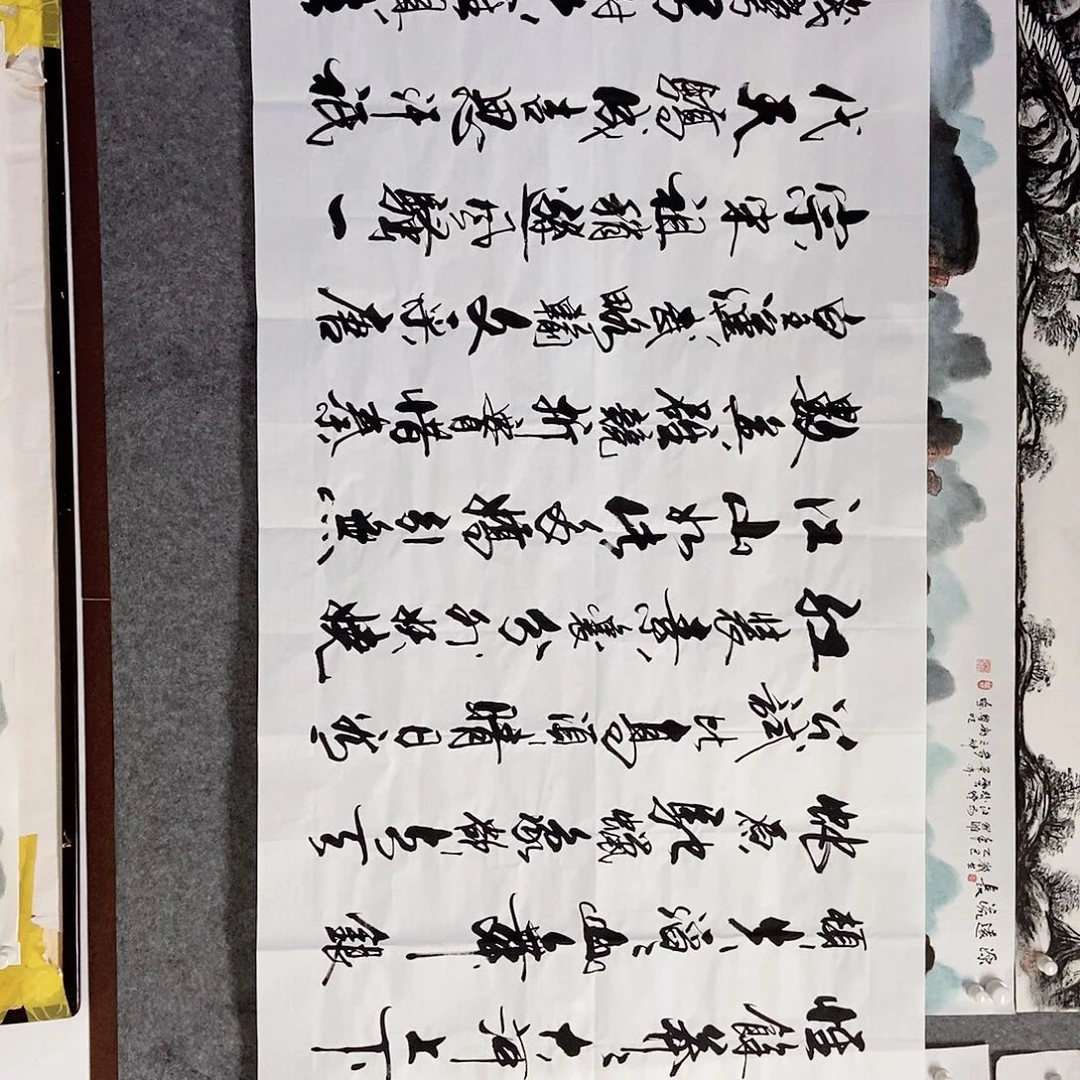 源遠流長
惟餘莽々大河上下
頓失滔々山舞銀
蛇原馳蠟象欲与天
公試比高須晴日看
紅裝素裹分外妖嬈
江山如此多嬌引無
數英雄競折腰惜秦
皇漢武略輸文采唐
宗宋祖稍遜風騷一
代天驕成吉思汗祇
識彎弓射大雕俱